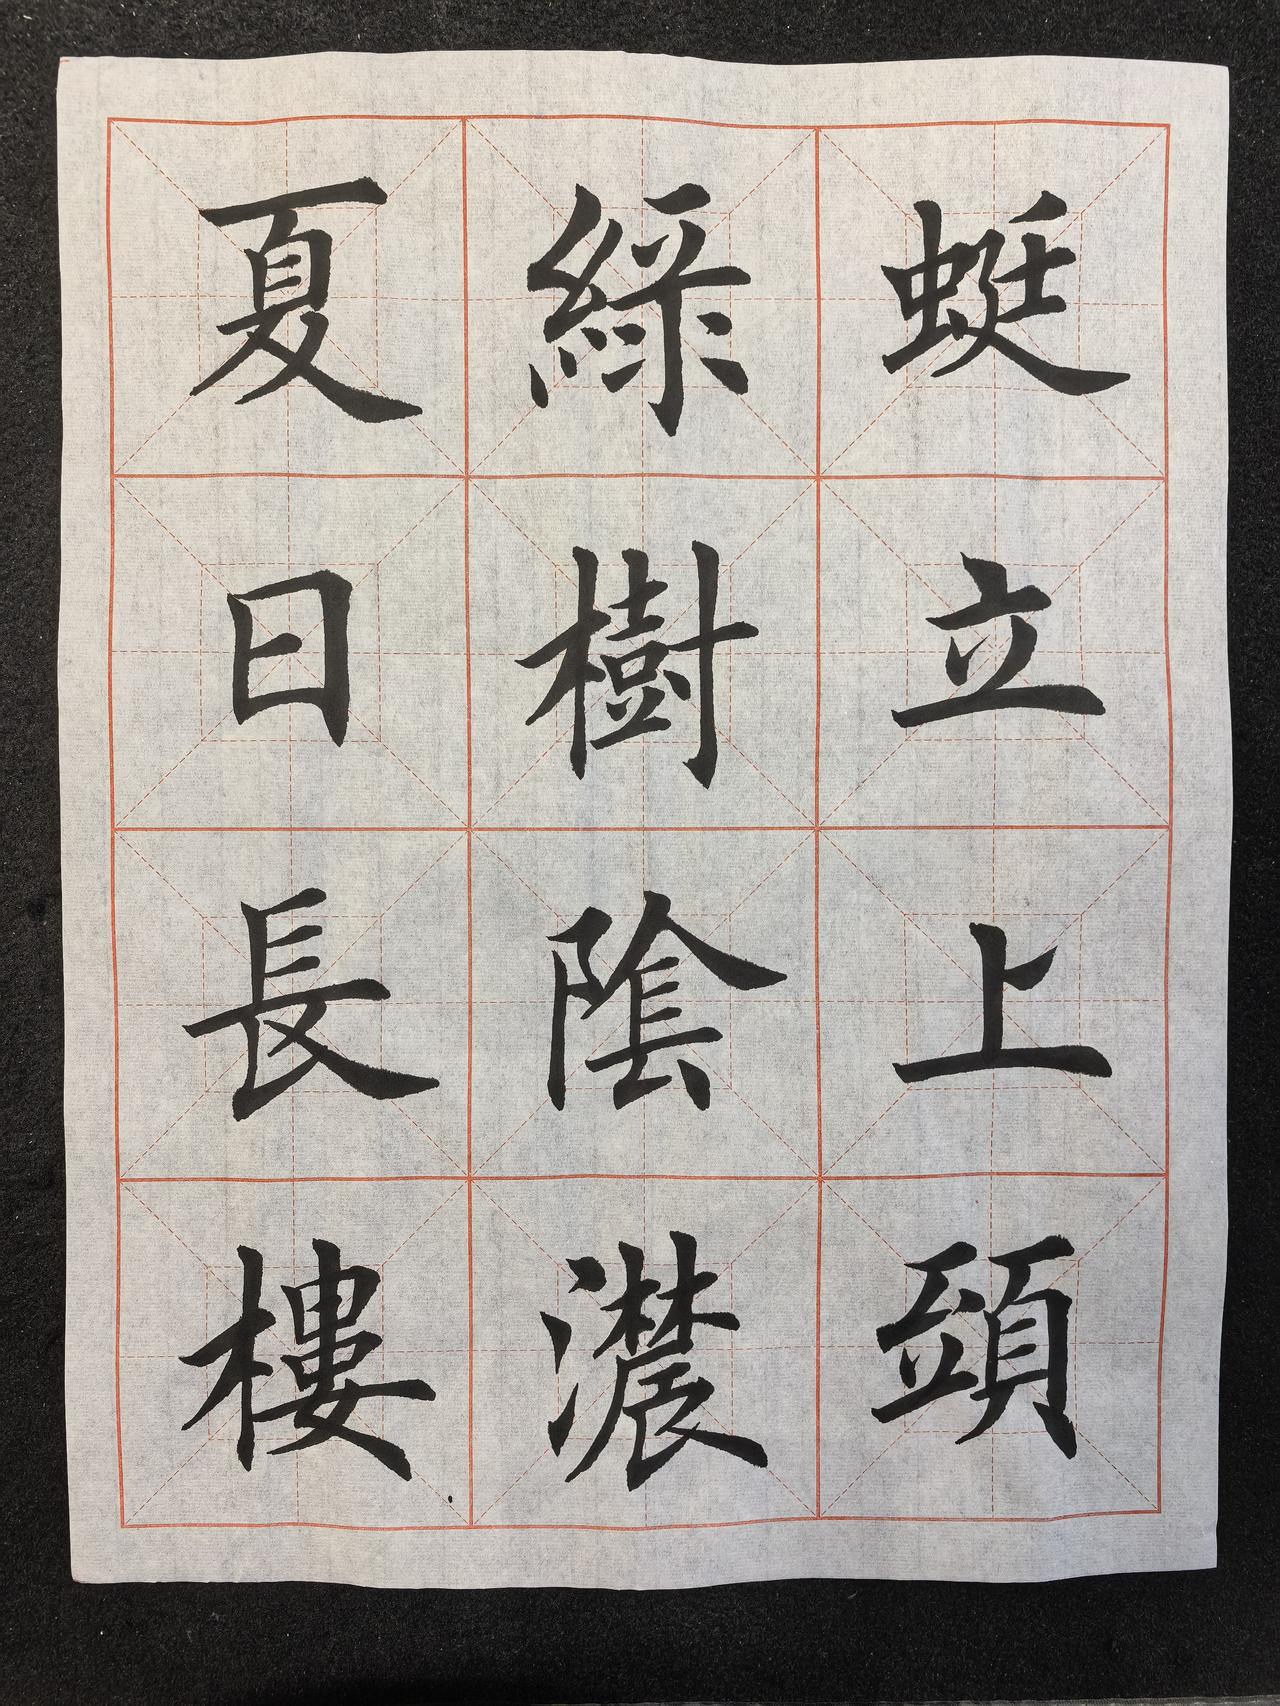 蜓立上頭
綠樹陰濃
夏日長樓